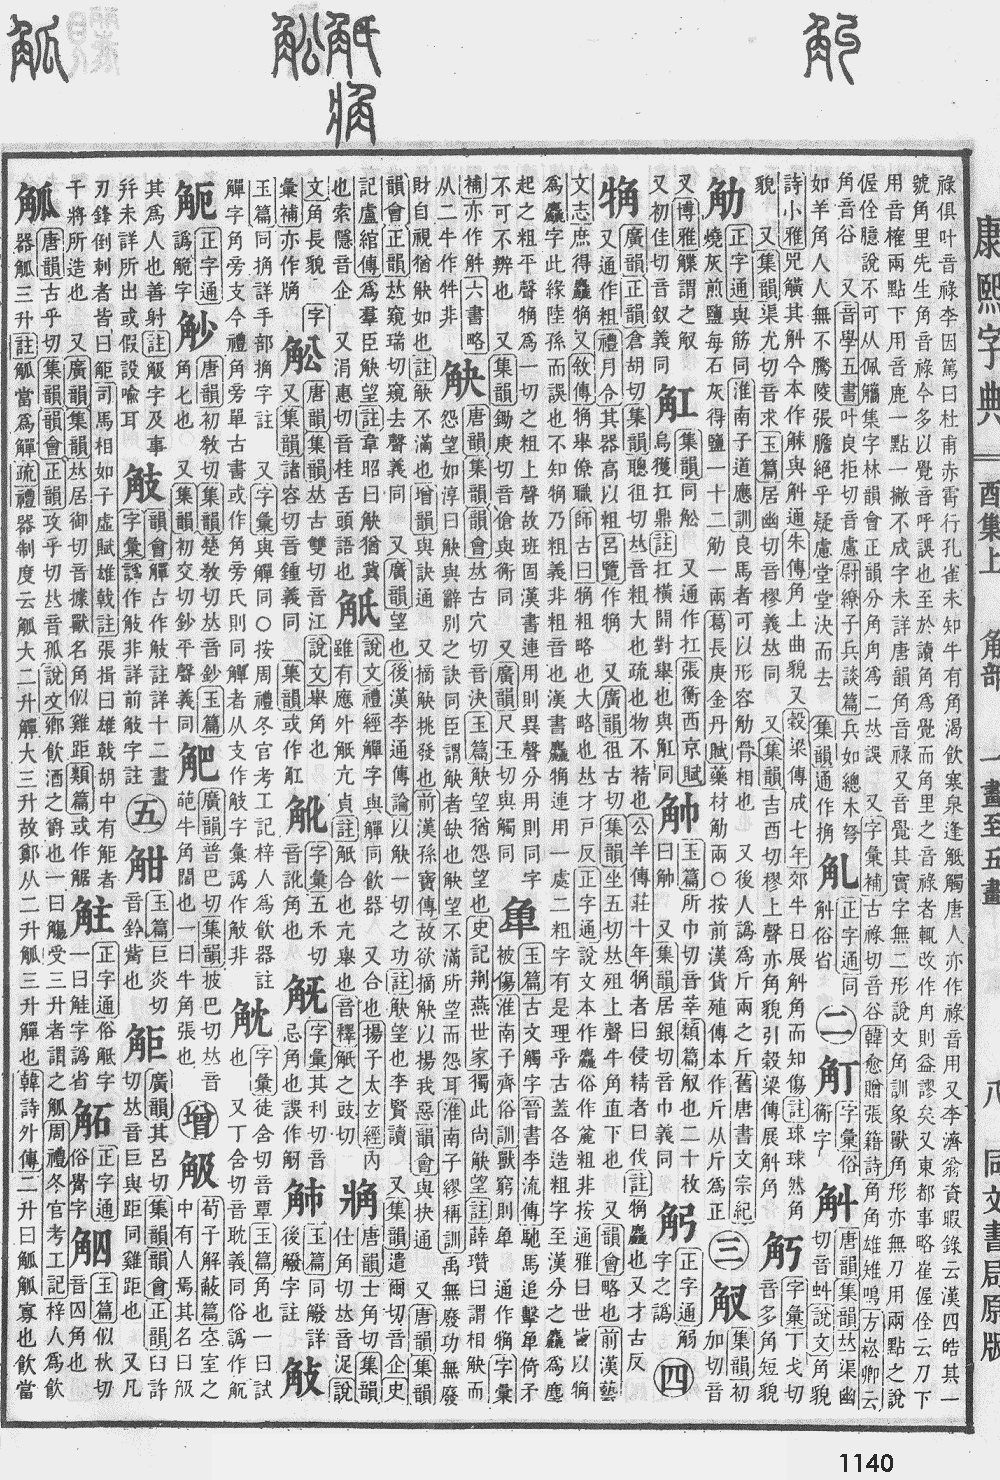 康熙字典 酉集上 角部 一畫至五畫 八 同文書局原版
祿俱叶音祿李因篤曰杜甫赤霄行孔雀未知牛有角渴飲寒泉逢觝觸唐人亦作祿音用又李濟翁資暇錄云漢四皓其一
號角里先生角音祿今多以覺音呼誤也至於讀角爲覺而角里之音祿者輒改作角則益謬矣又東都事略崔偓佺云刀下
用音榷兩點下用音鹿一點一撇不成字未詳唐韻角音祿又音覺其實字無二形說文角訓象獸角形亦無刀用兩點之說
偓佺臆說不可从佩觿集字林韻會正韻分角角爲二𠀤誤 又字彙補古祿切音谷韓愈贈張籍詩角角雄雉鳴方崧卿云
角音谷 又音學五書叶良拒切音慮尉繚子兵談篇兵如總木弩
如羊角人人無不騰陵張膽絕乎疑慮堂堂決而去 集韻通作捔
正字通同
觓俗省
二
字彙俗
衡字
觓
唐韻集韻𠀤渠幽
切音虯說文角貌
詩小雅兕觥其觓今本作觩與觓通朱傳角上曲貌又穀梁傳成七年郊牛日展觓角而知傷註球球然角
貌 又集韻渠尤切音求玉篇居幽切音樛義𠀤同 又集韻吉酉切樛上聲亦角貌引穀梁傳展觓角
字彙丁戈切
音多角短貌
觔
正字通與筋同淮南子道應訓良馬者可以形容觔骨相也 又後人譌爲斤兩之斤舊唐書文宗紀
燒灰煎鹽每石灰得鹽一十二觔一兩葛長庚金丹賦藥材觔兩○按前漢貨殖傳本作斤从斤爲正
三
觙
集韻初
加切音
又博雅觽謂之觙
又初佳切音釵義同
觓
集韻同舩 又通作扛張衡西京賦
烏獲扛鼎註扛橫開對舉也與舡同
玉篇所巾切音莘類篇觙也二十枚
曰觘 又集韻居銀切音巾義同
正字通觔
字之譌
四
觕
廣韻正韻倉胡切集韻聰徂切𠀤音粗大也疏也物不精也公羊傳莊十年觕者曰侵精者曰伐註觕麤也又才古反
又通作粗禮月令其器高以粗呂覽作觕 又廣韻徂古切集韻坐五切𠀤徂上聲牛角直下也 又韻會略也前漢藝
文志庶得麤觕又敘傳觕舉僚職師古曰觕粗略也大略也𠀤才戸反正字通說文本作麤俗作麄粗非按通雅曰世皆以觕
爲麤字此緣陸孫而誤也不知觕乃粗音非粗音也漢書麤觕連用一處二粗字有是理乎古蓋各造粗字至漢分之麤爲麈
起之粗平聲觕爲一切之粗上聲故班固漢書連用則異聲分用則同字
不可不辨也 又集韻鋤庚切音傖與衡同 又廣韻尺玉切與觸同
玉篇古文觸字晉書李流傳馳馬追擊𧢶倚矛
被傷淮南子齊俗訓獸窮則𧢶 通作觕字彙
補亦作觪六書略
从二牛作牪非
觖
唐韻集韻韻會𠀤古穴切音決玉篇觖望猶怨望也史記荆燕世家獨此尚觖望註薛瓚曰謂相觖而
怨望如淳曰觖與辭別之訣同臣謂觖者缺也觖望不滿所望而怨耳淮南子繆稱訓禹無廢功無廢
財自視猶觖如也註觖不滿也增韻與訣通 又摘觖挑發也前漢孫寶傳故欲摘觖以揚我惡韻會與抉通 又唐韻集
韻會正韻𠀤窺瑞切窺去聲義同 又廣韻望也後漢李通傳論以觖一切之功註觖望也李賢讀 又集韻遣爾切音企史
記盧綰傳爲羣臣觖望註韋昭曰觖猶冀也
也索隱音企 又涓惠切音桂舌頭語也
觗
說文禮經觶字與觶同飮器 又合也揚子太玄經內
雖有應外觗亢貞註觗合也亢舉也音釋觗之豉切
唐韻士角切集韻
仕角切𠀤音浞說
文角長貌 字
彙補亦作觕
舩
唐韻集韻𠀤古雙切音江說文舉角也
又集韻諸容切音鍾義同 或作舡
字彙五禾切
音訛角也
字彙其利切音
忌角也誤作觔
玉篇同觼詳
後觼字註
𧣀
玉篇同捔詳手部捔字註 又字彙與觶同○按周禮冬官考工記梓人爲飮器註
觶字角旁支今禮角旁單古書或作角旁氏則同觶者从支作𧣀字彙譌作觙非
字彙徒含切音覃玉篇角也一曰試
也 又丁含切音耽義同俗譌作䚱
正字通
譌䚩字
觘
唐韻初教切集韻楚教切𠀤音鈔玉篇
角匕也 又集韻初交切鈔平聲義同
廣韻普巴切集韻披巴切𠀤音
葩牛角闊也一曰牛角張也
增
荀子解蔽篇空室之
中有人焉其名曰觙
其爲人也善射註觙字及事
幷未詳所出或假設喩耳
韻會觶古作𧣀註詳十二畫
字彙譌作觙非詳前𧣀字註
五
玉篇巨炎切
音鈐觜也
距
廣韻其呂切集韻韻會正韻臼許
切𠀤音巨與距同雞距也 又凡
刃鋒倒刺者皆曰䶙司馬相如子虛賦雄戟註張揖曰雄戟胡中有䶙者
干將所造也 又廣韻集韻𠀤居御切音據獸名角似雞距類篇或作𧤅
正字通俗觝字
一曰觟字譌省
正字通
俗觷字
玉篇似秋切
音囚角也
觚
唐韻古乎切集韻韻會正韻攻乎切𠀤音孤說文鄉飮酒之爵也一曰觴受三升者謂之觚周禮冬官考工記梓人爲飮
器觚三升註觚當爲觶疏禮器制度云觚大二升觶大三升故鄭从二升觚三升觶也韓詩外傳二升曰觚觚寡也飮當
1140